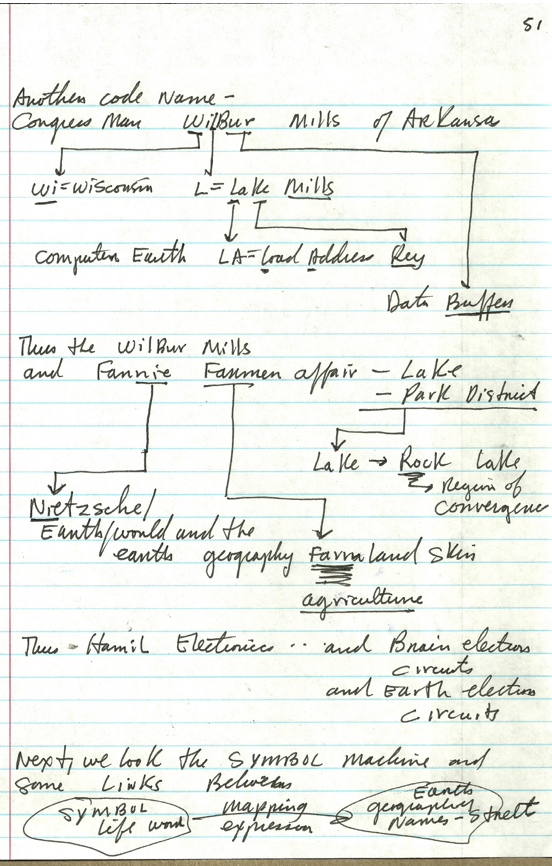 51
Another code Name -
Congress Man WilBur Mills of ArKansas
Wi = Wisconsin L = Lake Mills
Computer Earth LA = Load Address Key
Data Buffer
Thus the WilBur Mills
and Fannie Fanmen affair - Lake
- Park District
Lake → Rock lake
Region of
convergence
Nietzsche/
Earth/world and the
earth geography Farm land Skin
agriculture
Thus - Hamil Electronics .. and Brain electron
circuits
and Earth electron
circuits
Next, we look the SYMBOL machine and
Some Links Between
SYMBOL
life word
mapping
expression
Earth
geography
Names - Street